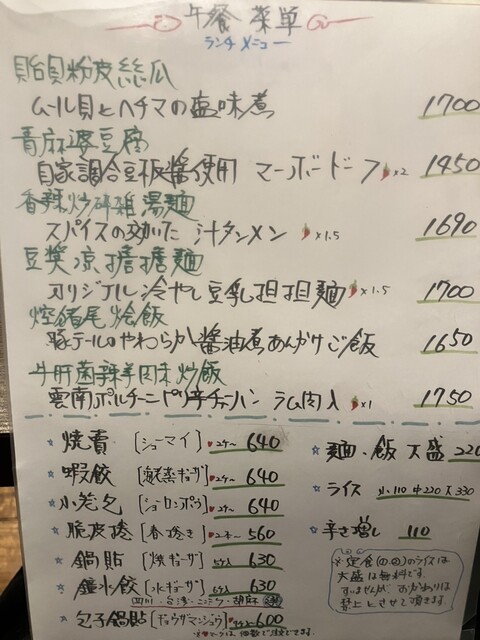 午餐 菜単
ランチメニュー
貽貝粉皮絲瓜
ムール貝とヘチマの塩味煮 1700
青麻婆豆腐
自家調合豆板醤使用 マーボードーフ ×2 1450
香辣炒碎雑湯麺
スパイスの効いた 汁タンメン ×1.5 1690
豆漿凉擔擔麺
オリジナル冷やし豆乳担担麺 ×1.5 1700
焢豬尾燴飯
豚テールのやわらか醤油煮あんかけご飯 1650
牛肝菌辣羊肉末炒飯
雲南ポルチーニピリ辛チャーハン ラム肉入 ×1 1750
☆ 焼賣 [シューマイ] 2ケ〜 640
☆ 蝦餃 [海老蒸ギョーザ] 2ケ〜 640
☆ 小籠包 [ショーロンポウ] 2ケ〜 640
☆ 脆皮捲 [春捲き] 2本〜 560
☆ 鍋貼 [焼ギョーザ] 5ケ入 630
☆ 鐘水餃 [水ギョーザ] 5ケ入 630
四川・台湾・ニンニク・胡麻
☆ 包子鍋貼 [ギョウザマンジュウ] 600
マークは、個数でご注文できます。
☆ 麺、飯 大盛 220
☆ ライス 小110 中220 大330
☆ 辛さ増し 110
※定食のライスは
大盛は無料です。
すいませんが、おかわりは
替りとさせて頂きます。